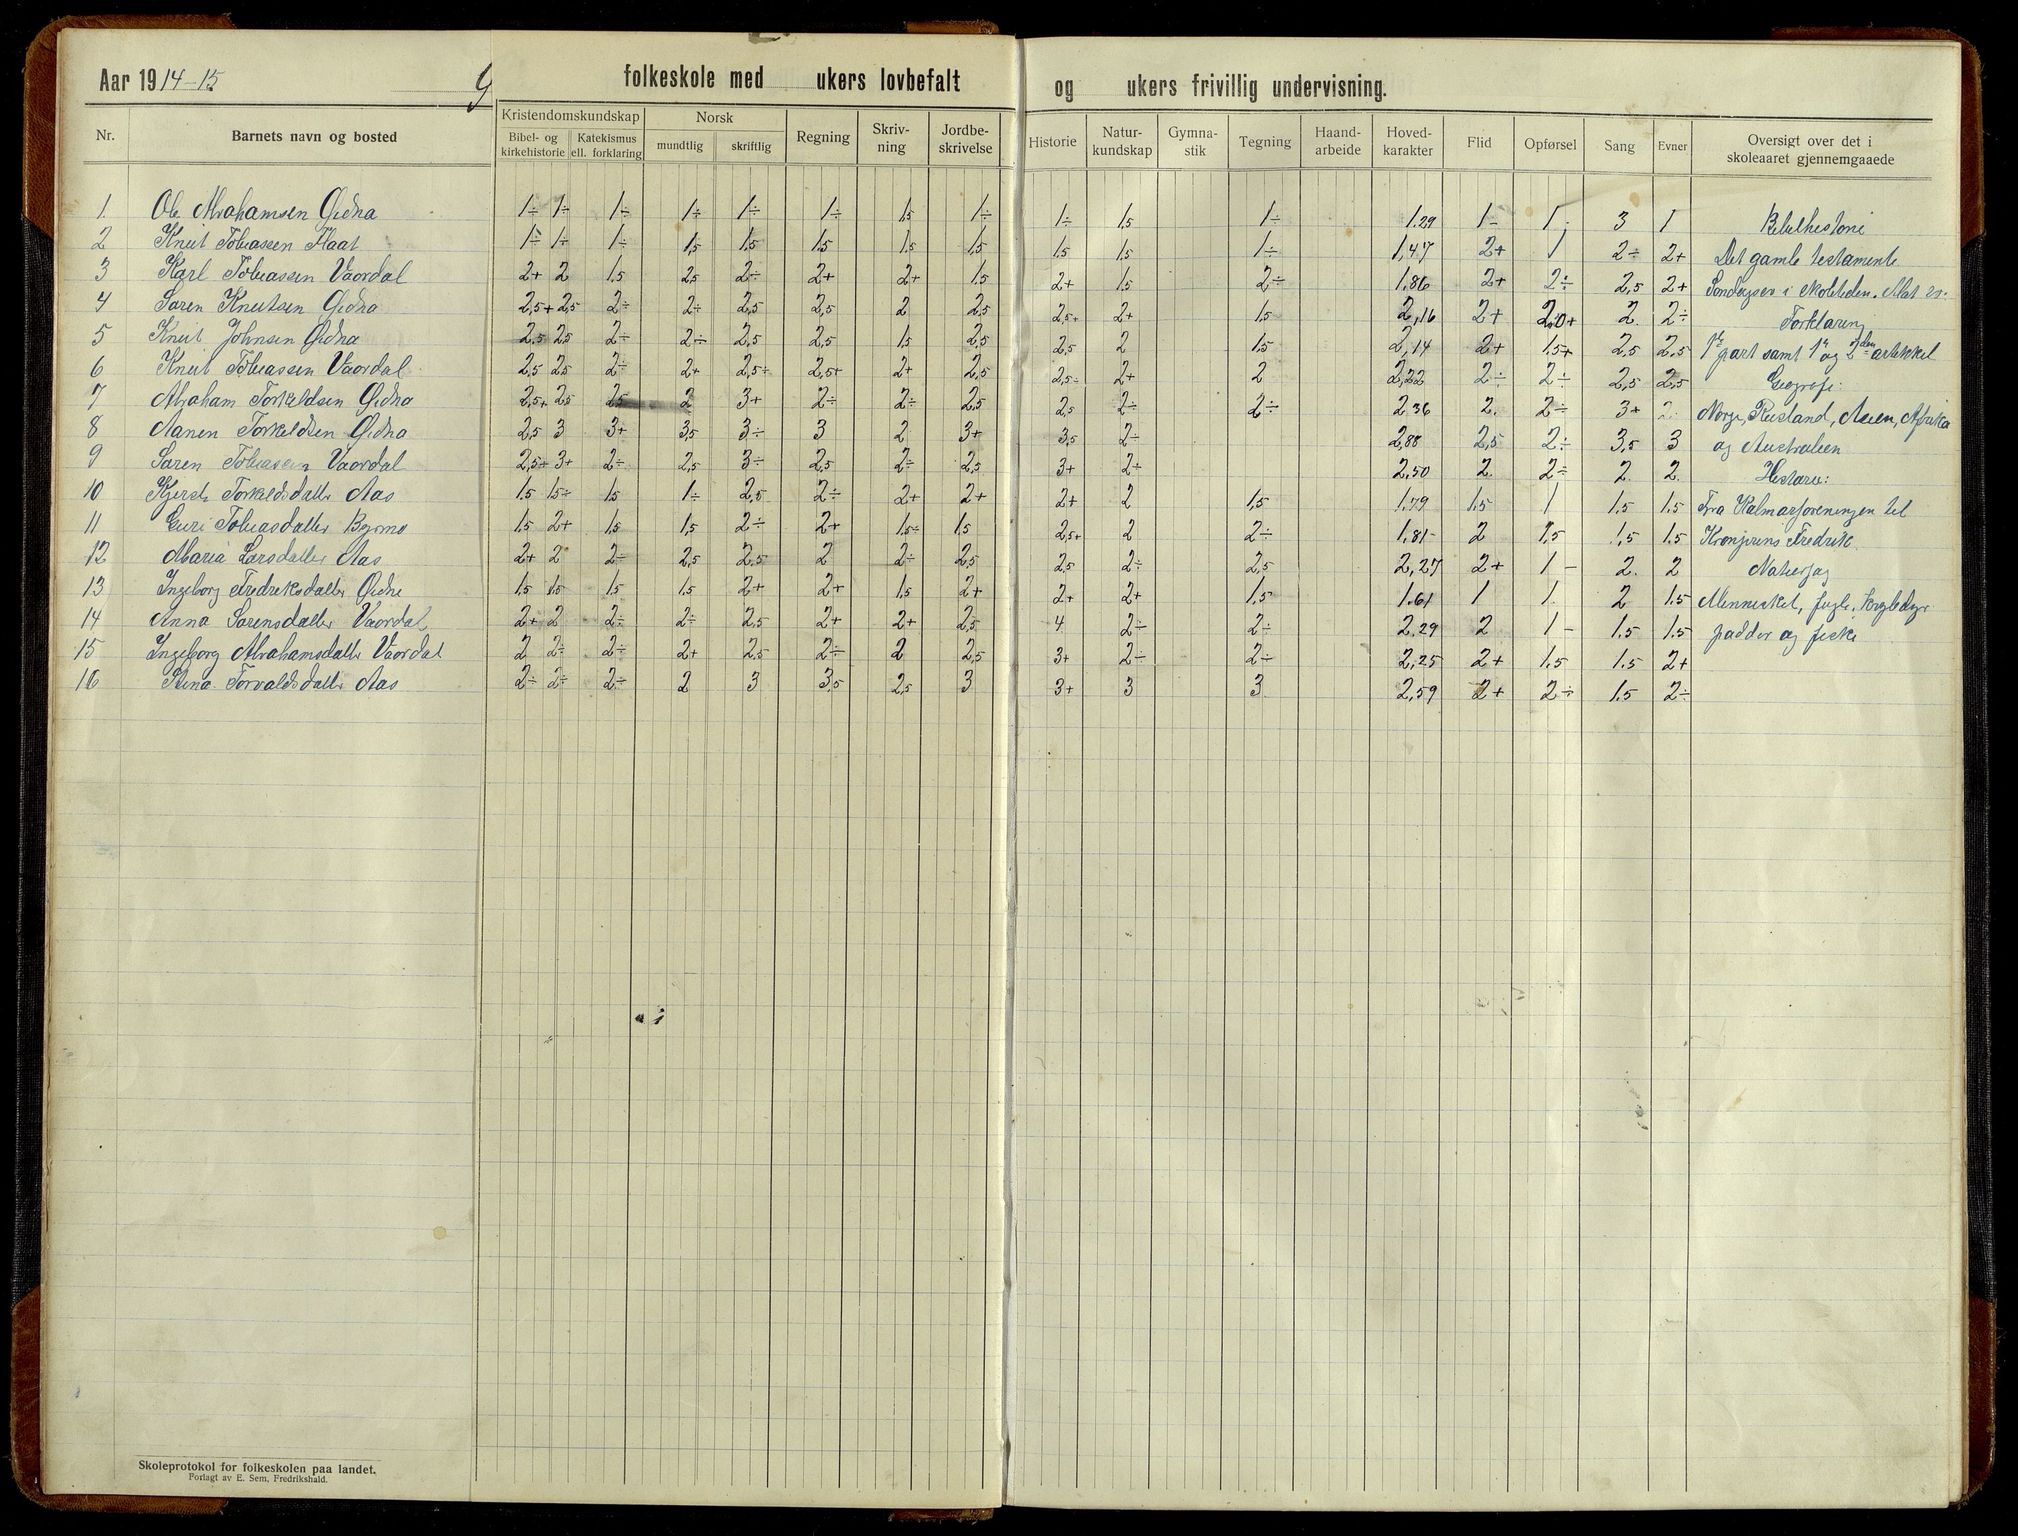 Aar 1914-15 folkeskole med ukers lovbefalt og ukers frivillig undervisning.
Nr. Barnets navn og bosted Kristendomskundskap Bibel- og kirkehistorie Katekismus ell. forklaring Norsk mundtlig skriftlig Regning Skrivning Jordbeskrivelse Historie Naturkundskap Gymnastik Tegning Haandarbeide Hovedkarakter Flid Opførsel Sang Evner Oversigt over det i skoleaaret gjennemgaaede
1. Ole Abrahamsen Øidna 1÷ 1÷ 1÷ 1÷ 1÷ 1÷ 1,5 1÷ 1÷ 1,5 1÷ 1.29 1- 1- 3 1 Bibelhestorie
2 Knut Tobiassen Flaat 1÷ 1÷ 1÷ 1,5 1.5 1.5 1.5 1,5 1.5 1.5 1÷ 1,47 2+ 1 2÷ 2+ Det gamle testamente
3 Karl Tobiassen Vaordal 2+ 2 1.5 2,5 2÷ 2+ 2+ 1.5 2+ 1.5 2÷ 1.86 2+ 2÷ 2,5 2+
4 Søren Knutsen Øidna 2,5+ 2,5 2÷ 2÷ 2,5 2,5 2 2,5 2,5+ 2+ 1.5 2,16 2+ 2.0+ 2. 2÷ Forklaring
5 Knut Johnsen Øidna 2.5 2.5 2÷ 2÷ 2,5 2,5 1.5 2,5 2,5 2 1.5 2,14 2+ 1.5+ 2,5 2,5 1ste part samt 1ste og 2den artikkel
6 Knut Tobiassen Vaordal 2.5 2.5 2÷ 2+ 2,5÷ 2,5+ 2+ 2,5 2,5÷ 2+ 2 2,22 2÷ 2÷ 2,5 2,5 Geografi:
7 Abraham Torkeldsen Øidna 2,5+ 2,5 2,5 2 3+ 2÷ 2÷ 2,5 2,5 2÷ 2÷ 2.36 2. 2÷ 3+ 2. Norge, Rusland, Asien, Afrika
8 Aanen Torkeldsen Øidna 2,5 3 3+ 3,5 3÷ 3 2 3+ 3,5 2÷ 2,88 2,5 2÷ 3,5 3 og Australien
9 Søren Tobiassen Vaordal 2,5+ 3+ 2÷ 2,5 3÷ 2,5 2÷ 2,5 3+ 2÷ 2,50 2 2÷ 2. 2. Historie:
10 Kjerste Torkeldsdatter Aas 1.5 1.5÷ 1.5 1÷ 2,5 2÷ 2+ 2+ 2+ 2 1,5 1.79 1.5 1 1.5 1.5 Fra Kalmarforeningen til
11 Guri Tobiasdatter Byrmo 1.5 2+ 1.5 1,5 2÷ 2+ 1.5÷ 1.5 2,5+ 2 2÷ 1.81- 2 1.5 1,5 1.5 Kronprins Fredrik.
12 Maria Larsdatter Aas 2+ 2 2÷ 2,5 2,5 2 2÷ 2,5 2,5 2÷ 2,5 2,27 2+ 1- 2. 2 Naturfag
13 Ingeborg Fredreksdatter Øidne 1.5 1.5 1.5 1.5 2+ 2+ 1.5 2+ 2+ 2+ 1.5 1.61 1 1. 2 1.5 Mennesket, fugle, krybedyr
14 Anna Sørensdatter Vaordal 2+ 2 2÷ 2÷ 2,5 2+ 2+ 2,5 4 2÷ 2÷ 2.29 2 1- 1.5 1.5 padder og fiske
15 Ingeborg Abrahamsdatter Vaordal 2 2÷ 2÷ 2+ 2.5 2÷ 2 2,5 3+ 2÷ 2÷ 2,25 2+ 1.5 1.5 2+
16 Stina Torvaldsdatter Aas 2÷ 2÷ 2÷ 2 3 3,5 2,5 3 3+ 3 3 2,59 2+ 2÷ 1.5 2÷
Skoleprotokol for folkeskolen paa landet.
Forlagt av E. Sem, Fredrikshald.